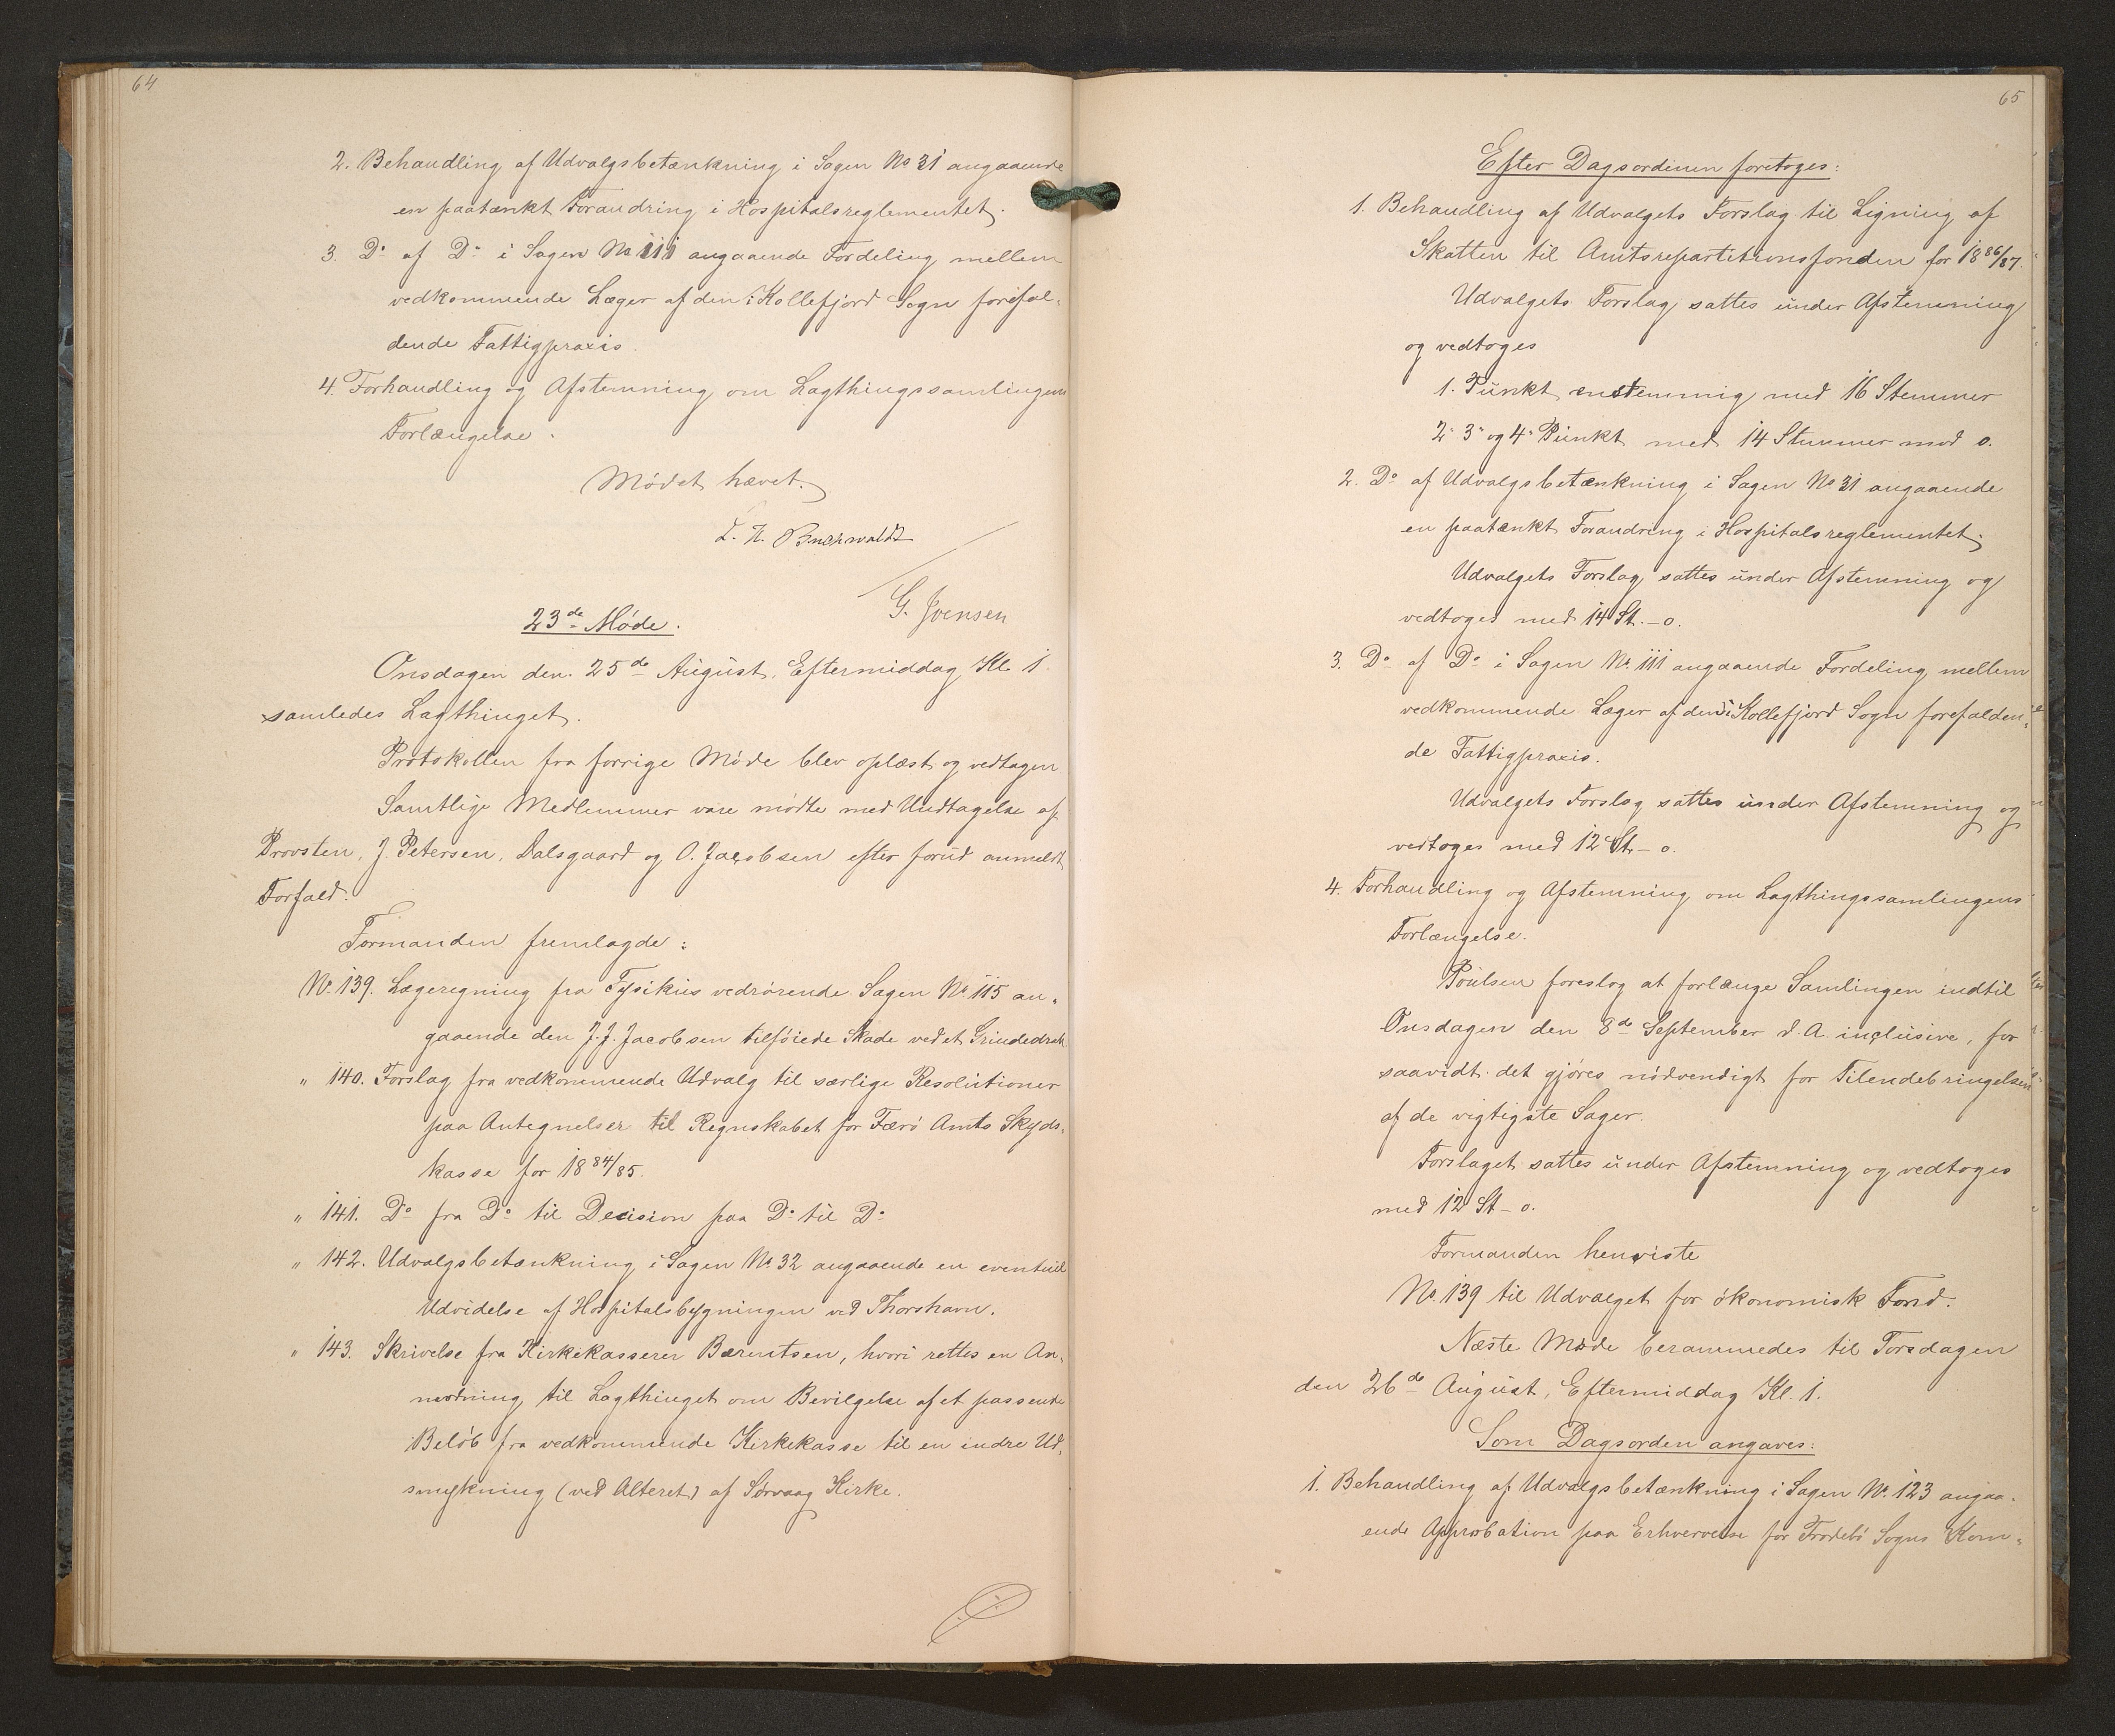 64
2. Behandling af Udvalgsbetænkning i Sagen No 31 angaaende
en paatænkt Forandring i Hospitalsreglementet.
3. Do af Do i Sagen No 111 angaaende Fordeling mellem
vedkommende Læger af den i Kollefjord Sogn forefal-
dende Fattigpraxis.
4. Forhandling og Afstemning om Lagthingssamlingens
Forlængelse.
Mødet hævet.
L. H. Buchwaldt
G. Joensen
23de Møde.
Onsdagen den 25de August, Eftermiddag Kl. 1.
samledes Lagthinget.
Protokollen fra forrige Møde blev oplæst og vedtagen
Samtlige Medlemmer vare mødte med Undtagelse af
Provsten, J. Petersen, Dalsgaard og O. Jacobsen efter forud anmeldt
Forfald.
Formanden fremlagde:
No. 139. Lægeregning fra Fysikus vedrørende Sagen No. 115 an-
gaaende den J. J. Jacobsen tilføiede Skade ved et Grindedrab
" 140. Forslag fra vedkommende Udvalg til særlige Resolutioner
paa Antegnelser til Regnskabet for Færø Amts Skyds-
kasse for 1884/85.
" 141. Do fra Do til Decision paa Do til Do
" 142. Udvalgsbetænkning i Sagen No 32 angaaende en eventuel
Udvidelse af Hospitalsbygningen ved Thorshavn.
" 143. Skrivelse fra Kirkekasserer Bærentsen, hvori rettes en An-
modning til Lagthinget om Bevilgelse af et passende
Beløb fra vedkommende Kirkekasse til en indre Ud-
smykning (ved Alteret) af Sørvaag Kirke.
65
Efter Dagsordenen foretoges:
1. Behandling af Udvalgets Forslag til Ligning af
Skatten til Amtsrepartitionsfonden for 1886/87.
Udvalgets Forslag sattes under Afstemning
og vedtoges
1. Punkt enstemmig med 16 Stemmer
2. 3. og 4. Punkt med 14 Stemmer mod 0.
2. Do af Udvalgsbetænkning i Sagen No 31 angaaende
en paatænkt Forandring i Hospitalsreglementet.
Udvalgets Forslag sattes under Afstemning og
vedtoges med 14 St. – 0.
3. Do af Do i Sagen No. 111 angaaende Fordeling mellem
vedkommende Læger af den i Kollefjord Sogn forefalden-
de Fattigpraxis.
Udvalgets Forslag sattes under Afstemning og
vedtoges med 12 St – 0.
4. Forhandling og Afstemning om Lagthingssamlingens
Forlængelse.
Poulsen foreslog at forlænge Samlingen indtil
Onsdagen den 8de September d. A. inclusive, for
saavidt det gjøres nødvendigt for Tilendebringelsen
af de vigtigste Sager.
Forslaget sattes under Afstemning og vedtoges
med 12 St – 0.
Formanden henviste
No 139 til Udvalget for økonomisk Fond.
Næste Møde berammedes til Torsdagen
den 26de August, Eftermiddag Kl. 1.
Som Dagsorden angaves:
1. Behandling af Udvalgsbetænkning i Sagen No. 123 angaa-
ende Approbation paa Erhvervelse for Frodebø Sogns Kom-